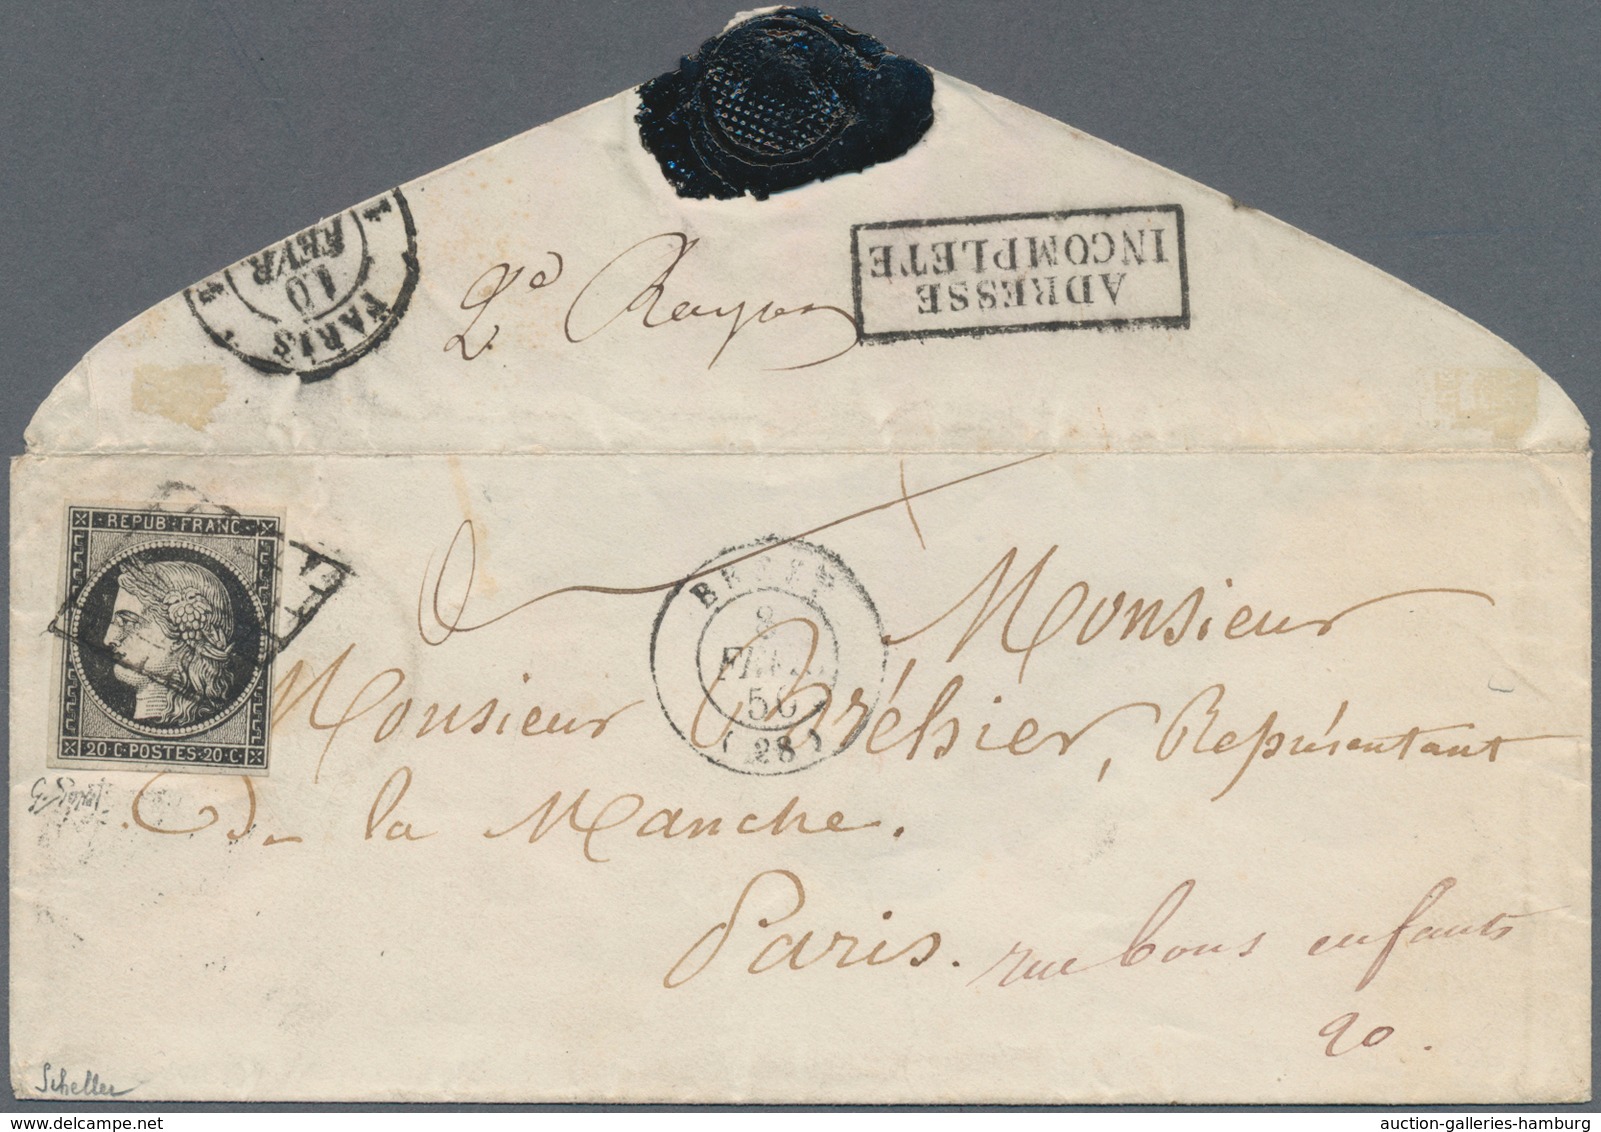 PARIS
10
FEVR
2e Rayon
ADRESSE
INCOMPLETE
REPUB·FRANC·
20·C·POSTES·20·C·
8
50
(28)
à Monsieur
Monsieur Bréhier, Représentant
de la Manche.
Paris. rue bons enfants
20.
Scheller
auction-galleries-hamburg